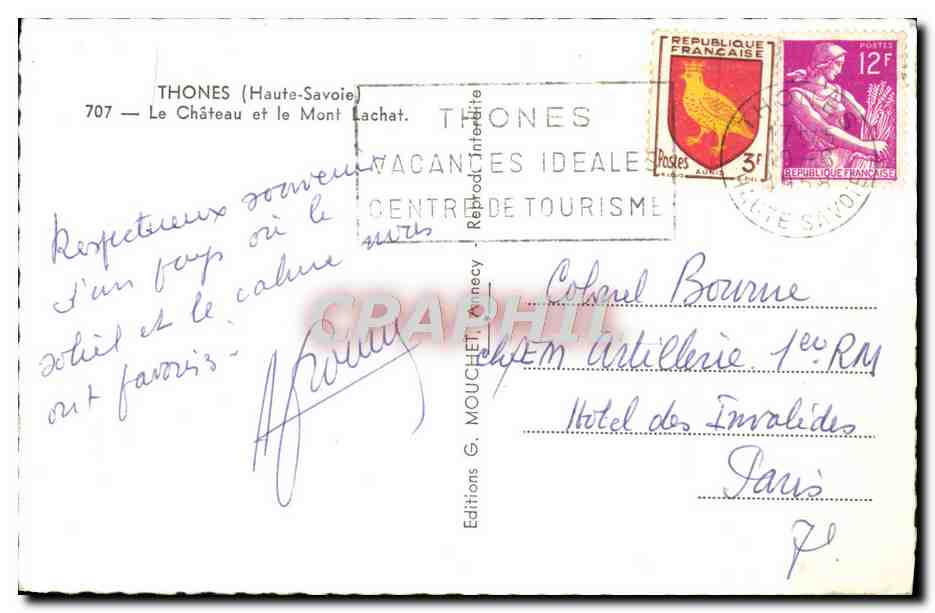 THONES (Haute-Savoie)
707 — Le Château et le Mont Lachat.
Respectueux souvenir
d'un pays où le
soleil et le calme nous
ont favorisés -
Editions G. MOUCHET, Annecy - Reprod. interdite
THONES
VACANCES IDEALES
CENTRE DE TOURISME
REPUBLIQUE
FRANÇAISE
Postes
3F
AUNIS
POSTES
12F
REPUBLIQUE FRANÇAISE
THONES
HAUTE SAVOIE
Colonel Bourne
chef EM Artillerie 1ere RM
Hotel des Invalides
Paris
7e
CPAPHIL